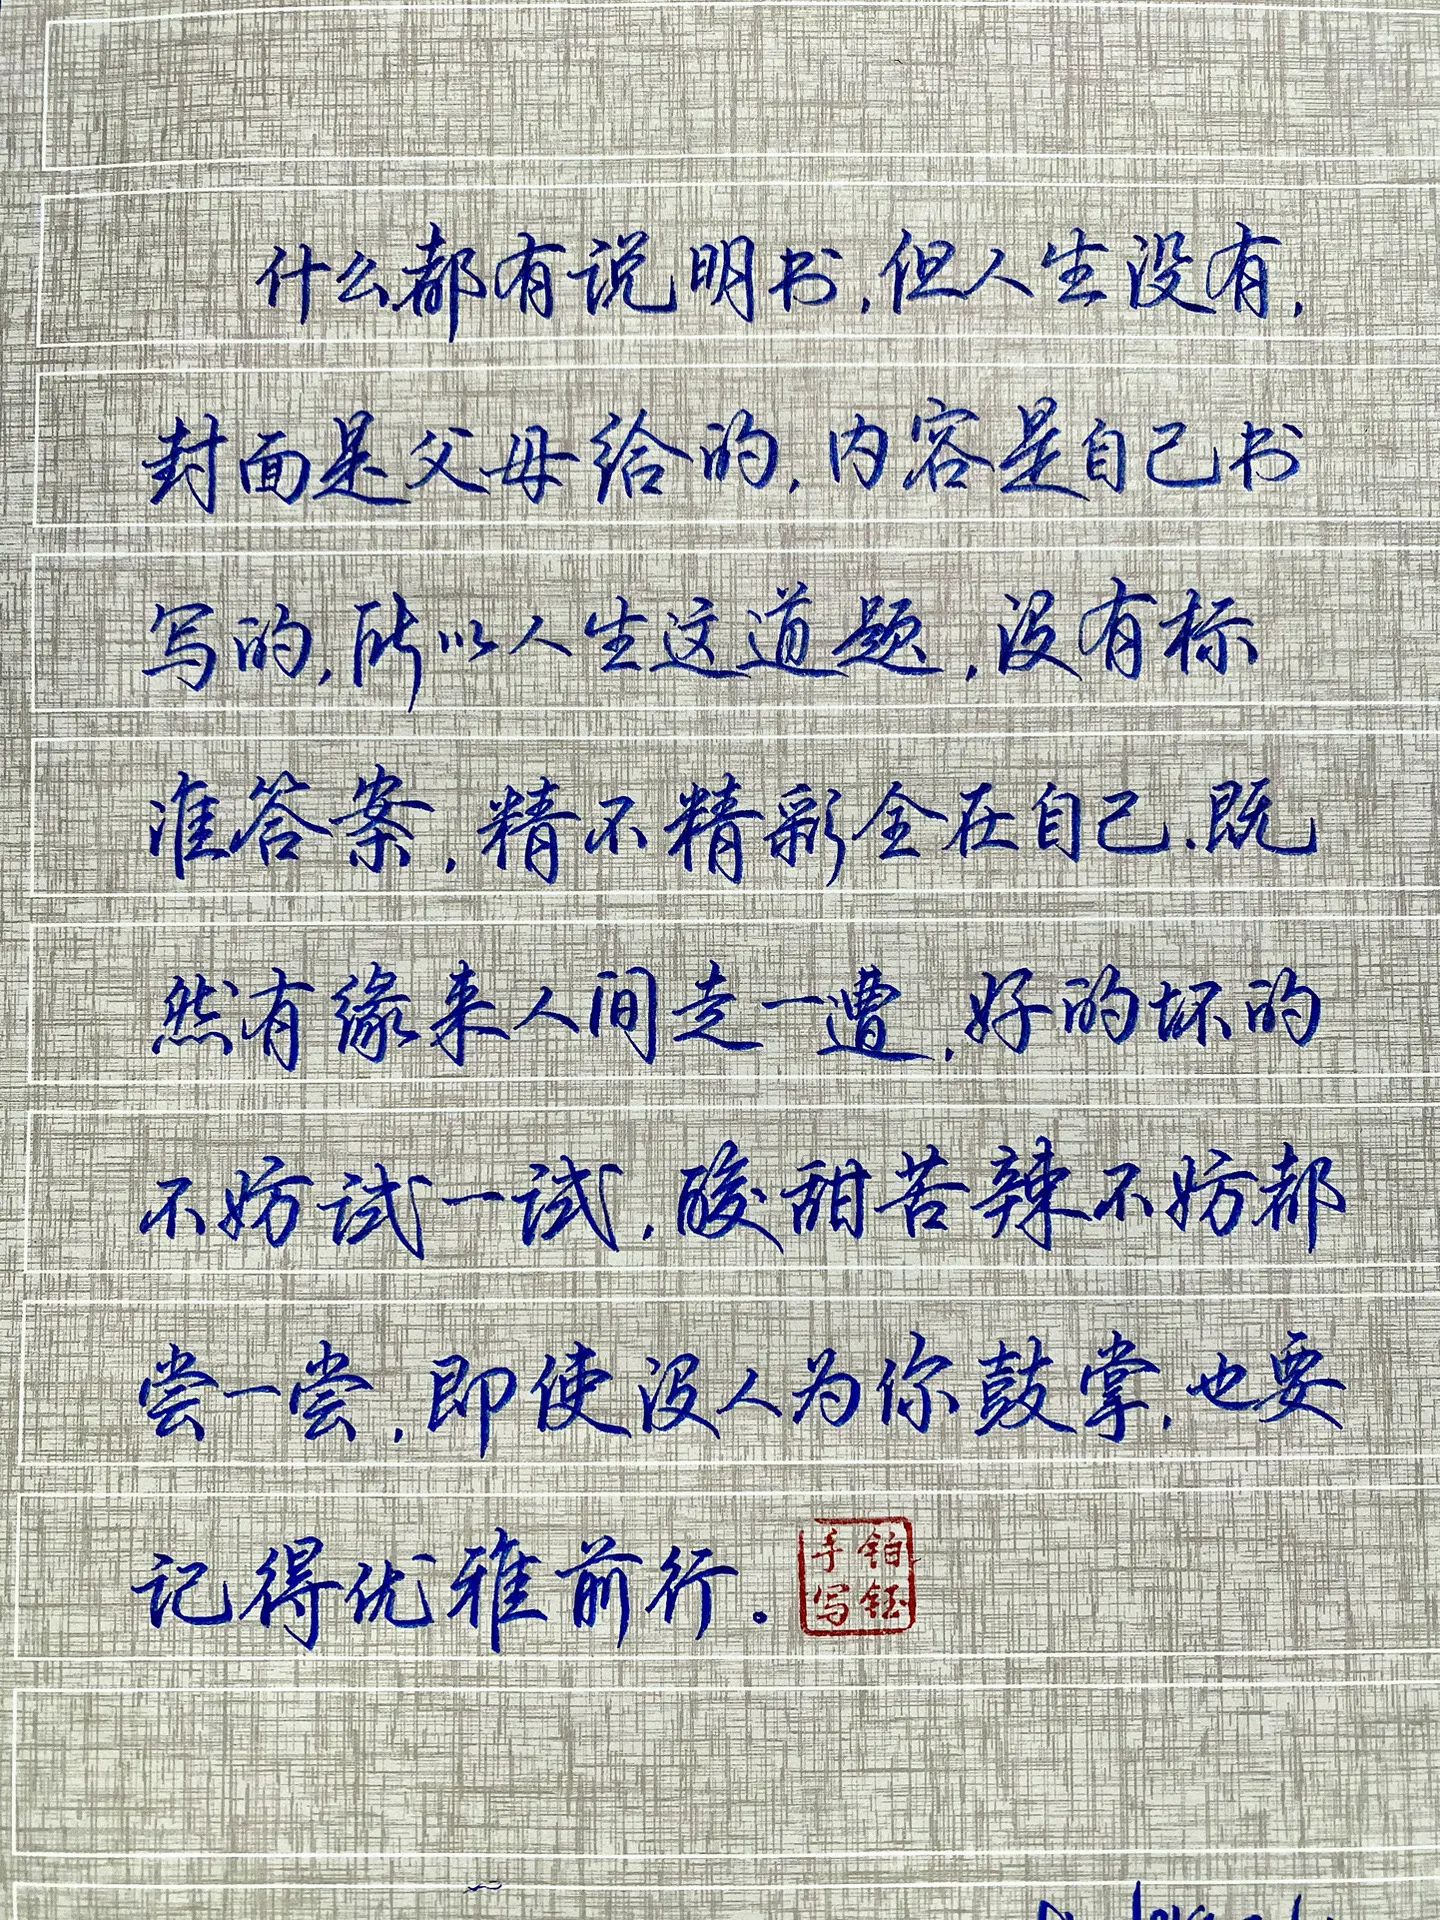 什么都有说明书,但人生没有,
封面是父母给的,内容是自己书
写的,所以人生这道题,没有标
准答案,精不精彩全在自己.既
然有缘来人间走一遭,好的坏的
不妨试一试,酸甜苦辣不妨都
尝一尝,即使没人为你鼓掌,也要
记得优雅前行。
铂钰
手写